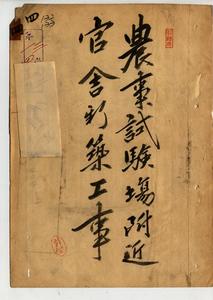 農事試験場附近
官舎新築工事